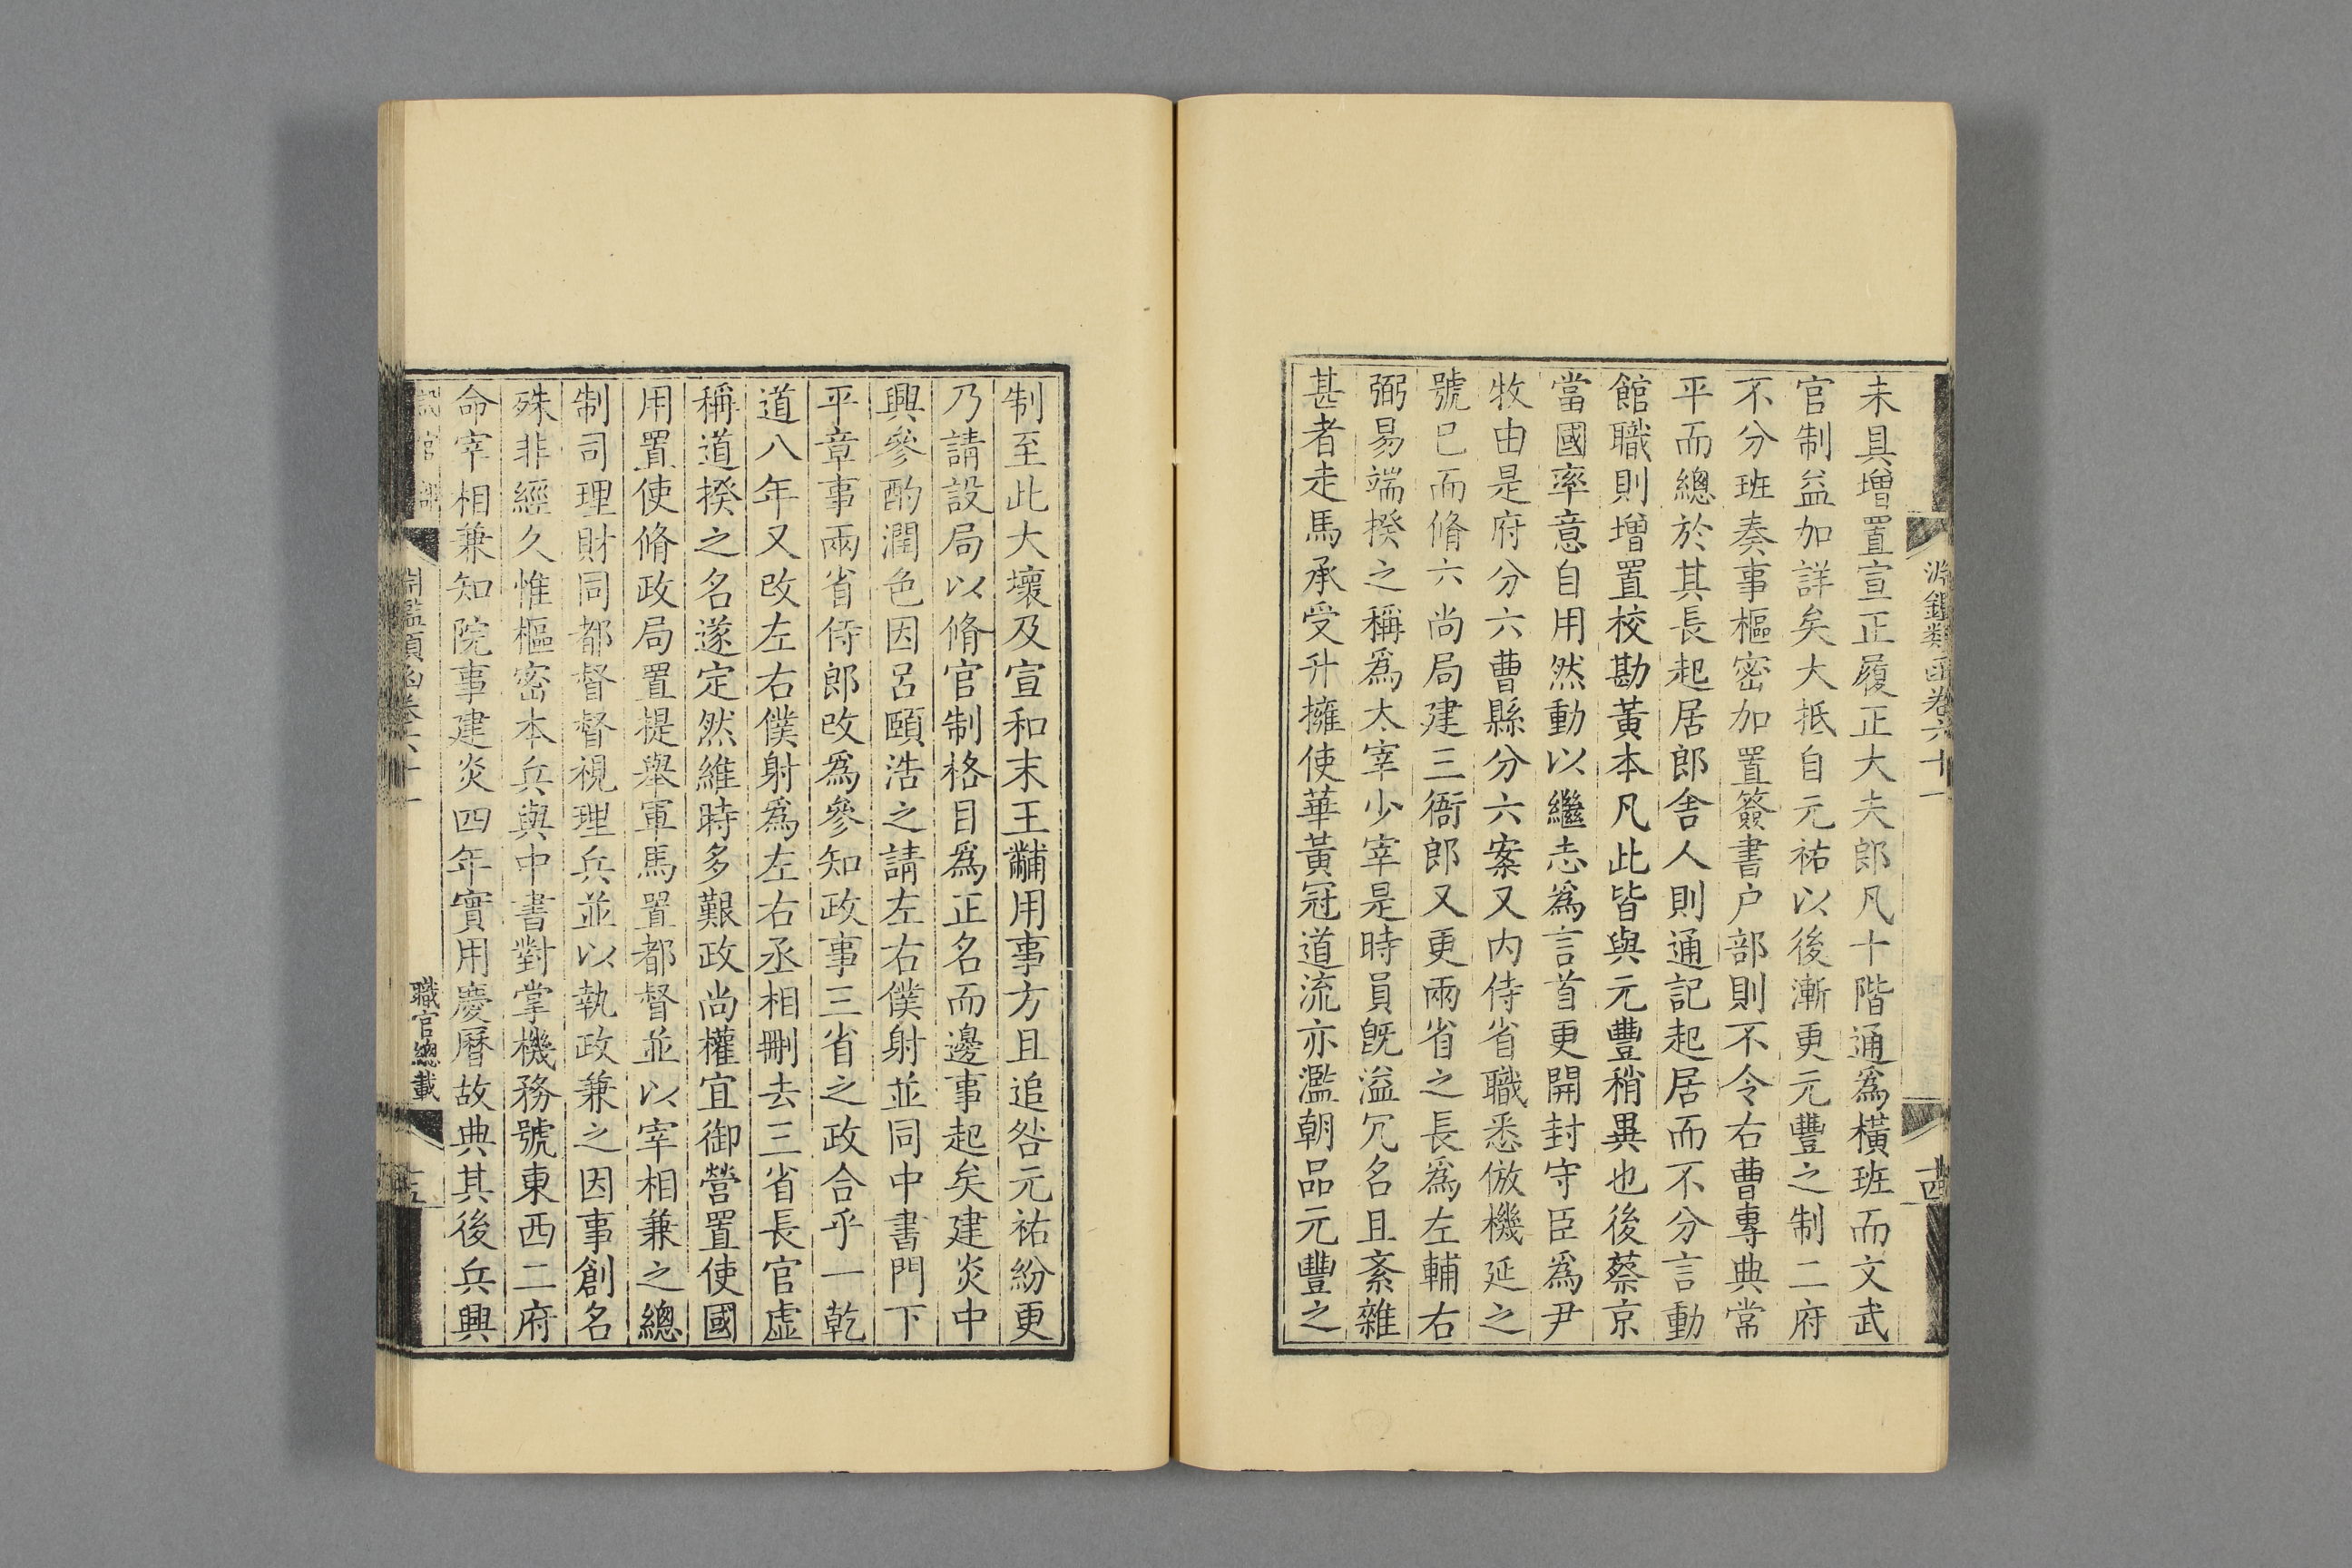 淵鑑類函卷六十一
十四
未具增置宣正履正大夫郎凡十階通爲橫班而文武
官制益加詳矣大抵自元祐以後漸更元豐之制二府
不分班奏事樞密加置簽書户部則不令右曹專典常
平而總於其長起居郎舍人則通記起居而不分言動
館職則增置校勘黃本凡此皆與元豐稍異也後蔡京
當國率意自用然動以繼志爲言首更開封守臣爲尹
牧由是府分六曹縣分六案又内侍省職悉倣機延之
號已而脩六尚局建三衙郎又更兩省之長爲左輔右
弼易端揆之稱爲太宰少宰是時員旣溢冗名且紊雜
甚者走馬承受升擁使華黃冠道流亦濫朝品元豐之
制至此大壞及宣和末王黼用事方且追咎元祐紛更
乃請設局以脩官制格目爲正名而邊事起矣建炎中
興參酌潤色因呂頤浩之請左右僕射並同中書門下
平章事兩省侍郎改爲參知政事三省之政合乎一乾
道八年又改左右僕射爲左右丞相刪去三省長官虛
稱道揆之名遂定然維時多艱政尚權宜御營置使國
用置使脩政局置提舉軍馬置都督並以宰相兼之總
制司理財同都督督視理兵並以執政兼之因事創名
殊非經久惟樞密本兵與中書對掌機務號東西二府
命宰相兼知院事建炎四年實用慶曆故典其後兵興
淵鑑類函卷六十一
職官總載
十五